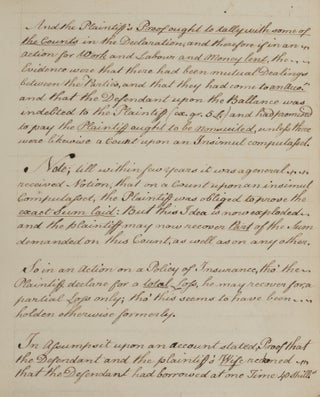 And the Plaintiff's Proof ought to tally with some of
the Counts in the Declaration, and therefore if in an
action for Work and Labour and Money lent, the
Evidence were that there had been mutual Dealings
between the Parties, and that they had come to an Acco.t
and that the Defendant upon the Ballance was
indebted to the Plaintiff (ex: gr. 5£) and had promised
to pay the Plaintiff ought to be nonsuited, unless there
were likewise a Count upon an Insimul computasset.
Note; till within few years it was a general
received Notion, that on a Count upon an insimul
Computasset, the Plaintiff was obliged to prove the
exact Sum laid: But this Idea is now exploded
and the plaintiff may now recover Part of the Sum
demanded on this Count, as well as on any other.
So in an Action on a Policy of Insurance, tho' the
Plaintiff declare for a total Loss, he may recover for a
partial Loss only, tho' this seems to have been
holden otherwise formerly.
In Assumpsit upon an account stated, Proof that
the Defendant and the plaintiff's Wife reckoned
that the Defendant had borrowed at one Time 40 Shill.s